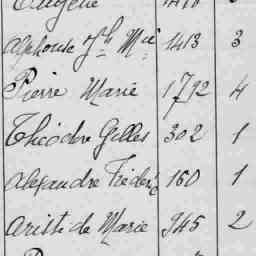 Eugène
Alphonse Jh Mie 1413 3
Pierre Marie 1792 4
Théodre Gilles 302 1
Alexandre Fréderic 160 1
Aristide Marie 945 2